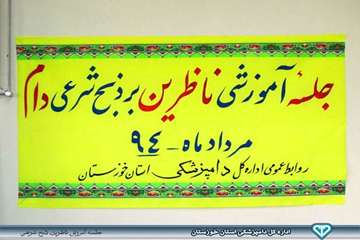 جلسهٔ آموزشی ناظرین بر ذبح شرعی دام
مرداد ماه - ۹۴
روابط عمومی اداره کل دامپزشکی استان خوزستان
اداره کل دامپزشکی استان خوزستان
جلسه آموزش ناظرین ذبح شرعی